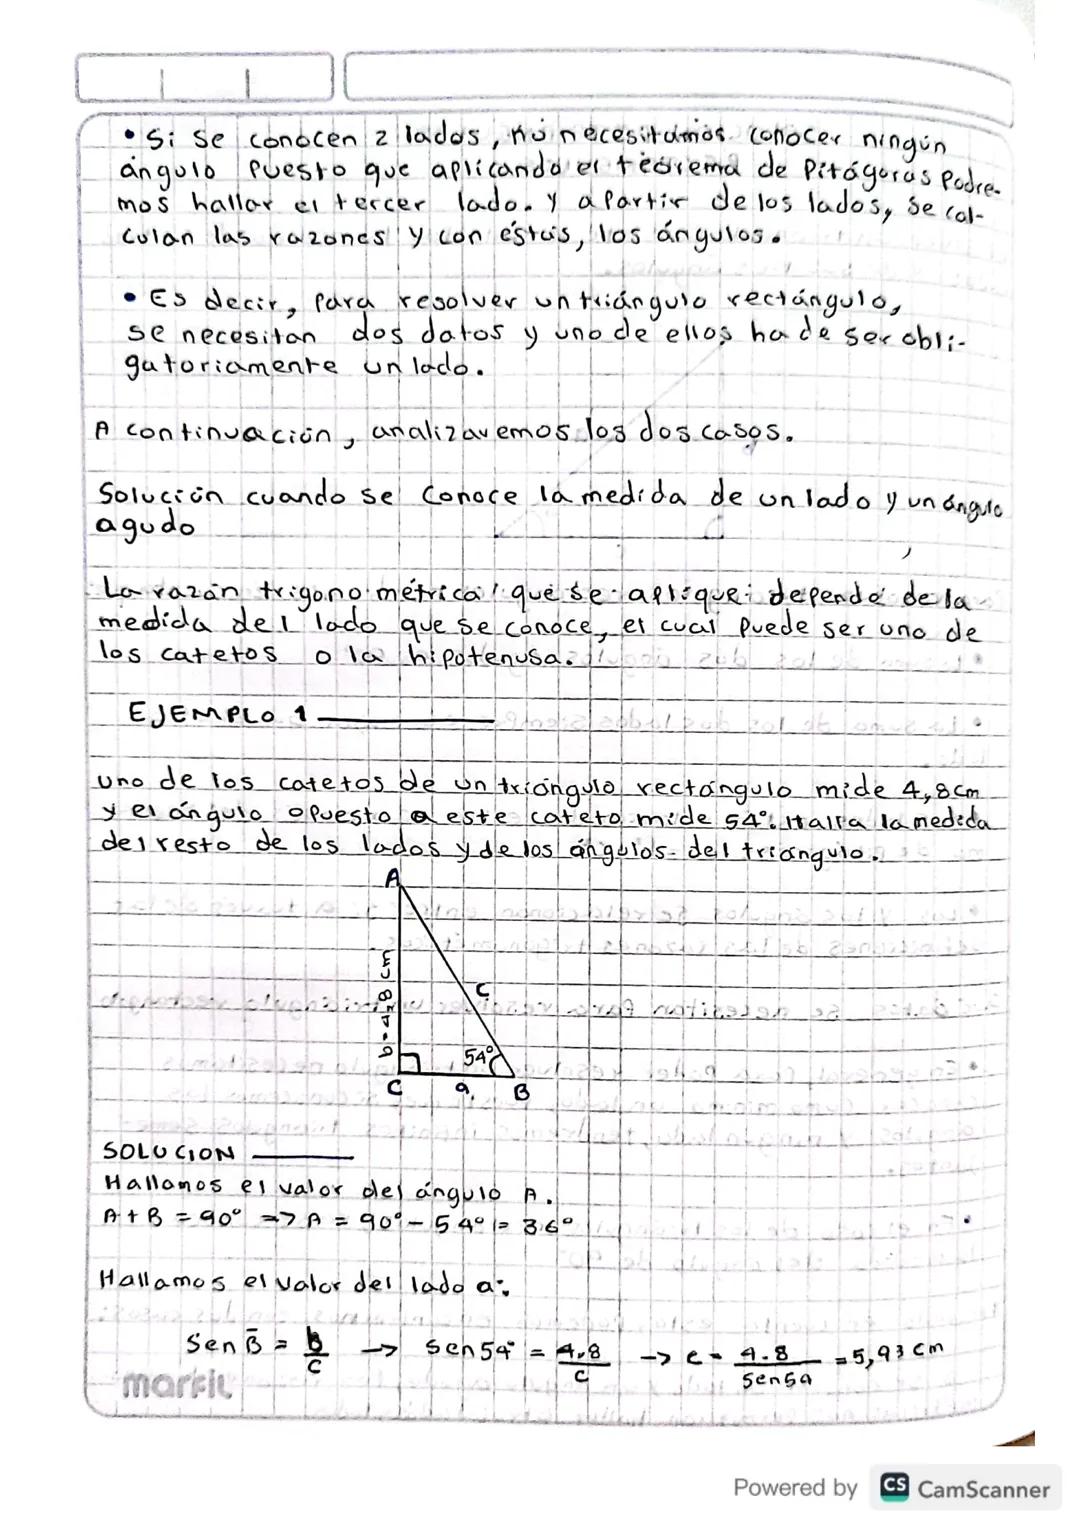 • Si se conocen 2 lados, no necesitamos conocer ningún
ángulo puesto que aplicando el teorema de Pitágoras Podre-
mos hallar el tercer lado. y a Partir de los lados, se cal-
culan las razones y con éstas, los ángulos.
• Es decir, para resolver un triángulo rectángulo,
se necesitan dos datos y uno de ellos ha de ser obli-
gatoriamente un lado.
A continuación, analizaremos los dos casos.
Solución cuando se conoce la medida de un lado y un ángulo
agudo
La razón trigonométrica que se aplique depende de la
medida del lado que se conoce, el cual puede ser uno de
los catetos o la hipotenusa.
EJEMPLO 1
uno de los catetos de un triángulo rectángulo mide 4,8cm
y el ángulo opuesto a este cateto mide 54°. Halla la medida
del resto de los lados y de los ángulos del triángulo.
A
b = 4,8 cm
c
54°
C a B
SOLUCION
Hallamos el valor del ángulo A.
A + B = 90° => A = 90° - 54° = 36°
Hallamos el valor del lado a:
Sen B̄ = b/c → sen 54° = 4.8/c → c = 4.8/sen 54 = 5,93 cm
markil
Powered by CS CamScanner